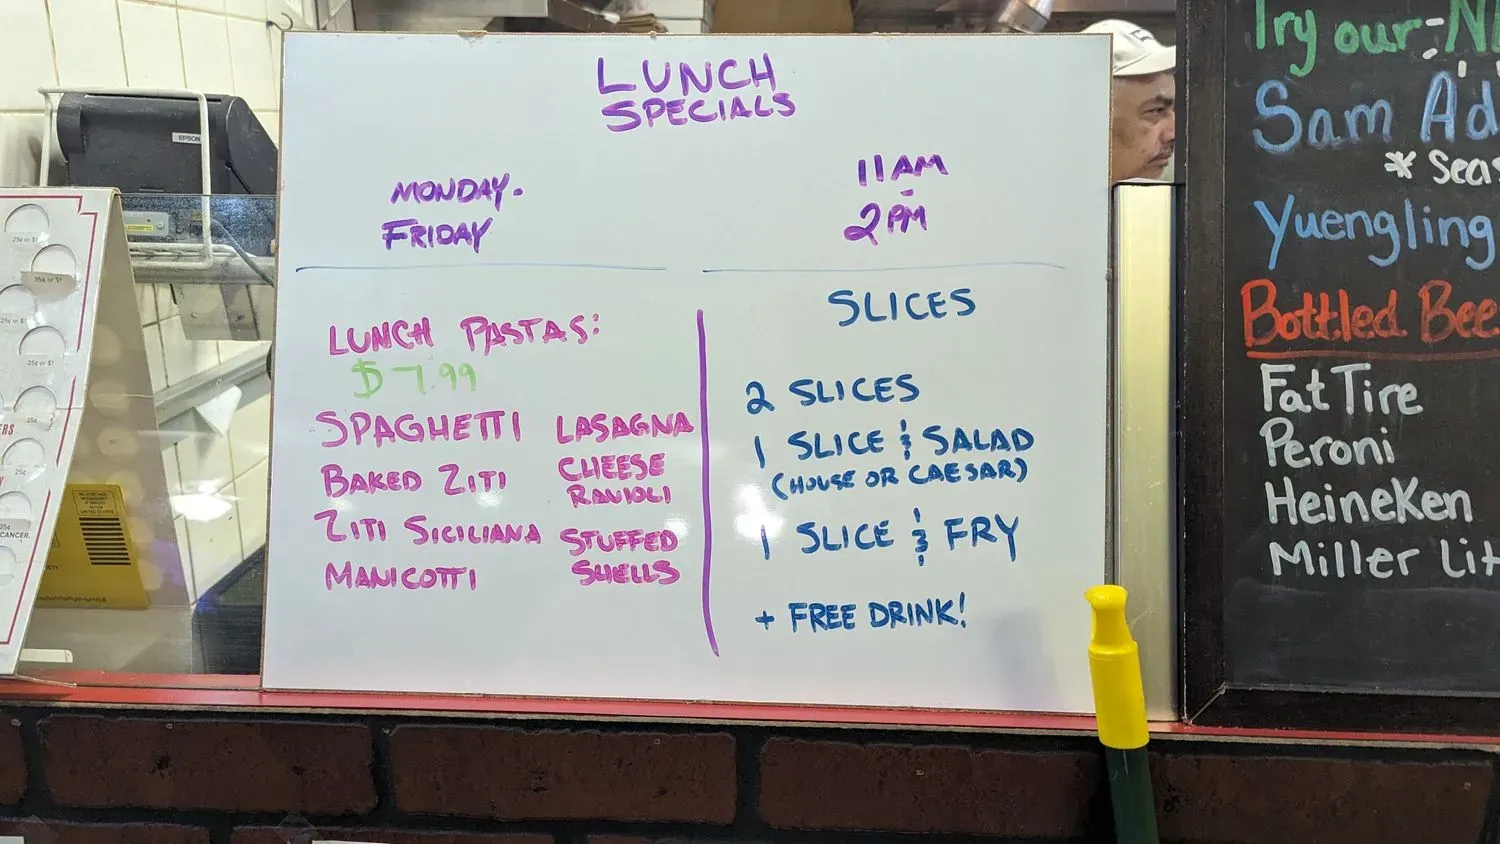 LUNCH
SPECIALS
MONDAY-
FRIDAY
11AM
-
2PM
LUNCH PASTAS:
$7.99
SPAGHETTI
BAKED ZITI
ZITI SICILIANA
MANICOTTI
LASAGNA
CHEESE
RAVIOLI
STUFFED
SHELLS
SLICES
2 SLICES
1 SLICE & SALAD
(HOUSE OR CAESAR)
1 SLICE & FRY
+ FREE DRINK!
Try our
Sam Ad
* Seas
Yuengling
Bottled Bee
Fat Tire
Peroni
Heineken
Miller Lit
EPSON
25¢ or $1
25¢ or $1
25¢ or $1
25¢ or $1
25¢
25¢
25¢
CANCER.